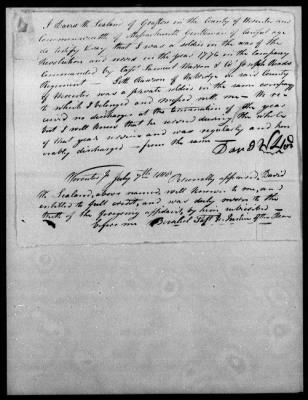 I David W Leland of Grafton in the County of Worcester and
Commonwealth of Massachusetts Gentleman of lawful age
do testify & say that I was a soldier in the war of the
Revolution and was in the year 1776 in the company
Commanded by Capt Samuel Warren & Col Joseph Reads
Regiment Seth Rawson of Uxbridge in said County
of Worcester was a private soldier in the same company
to which I belonged and messed with me. We re-
ceived no discharge at the termination of the year
but I well know that he served during the whole
of that year service and was regularly and hon-
orably discharged from the same
David W Leland
Worcester Ss July 7th Personally appeared, David
W Leland, above named, well known to me, and
entitled to full credit, and was duly sworn to the
truth of the foregoing affidavit, by him subscribed
before me Justice of the Peace